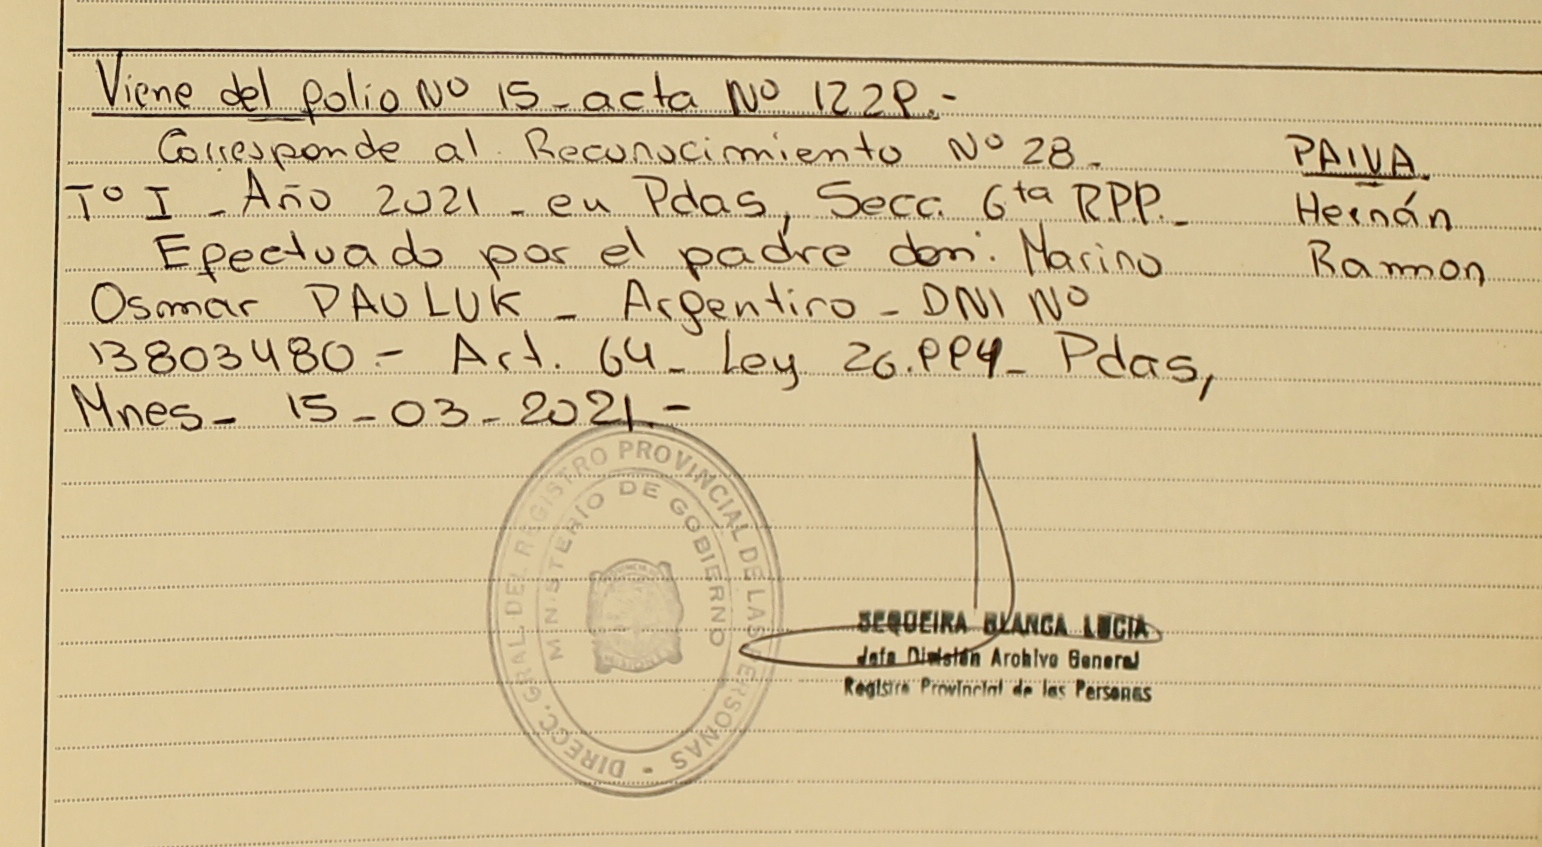 Viene del folio Nº 15 - acta Nº 1229.-
Corresponde al Reconocimiento Nº 28.
Tº I - Año 2021 - en Pdas, Secc. 6ta RPP.-
Efectuado por el padre don: Marino
Osmar PAULUK - Argentino - DNI Nº
13803480.- Art. 64 - Ley 26.994 - Pdas,
Mnes - 15-03-2021.-
PAIVA
Hernán
Ramon
DIRECC. GRAL. DEL REGISTRO PROVINCIAL DE LAS PERSONAS -
MINISTERIO DE GOBIERNO
SEQUEIRA BLANCA LUCIA
Jefa División Archivo General
Registro Provincial de las Personas